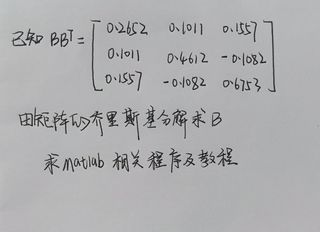 已知 BBᵀ = [ 0.2652 0.1011 0.1557
0.1011 0.4612 -0.1082
0.1557 -0.1082 0.6753 ]
由矩阵的乔里斯基分解求B
求matlab相关程序及教程